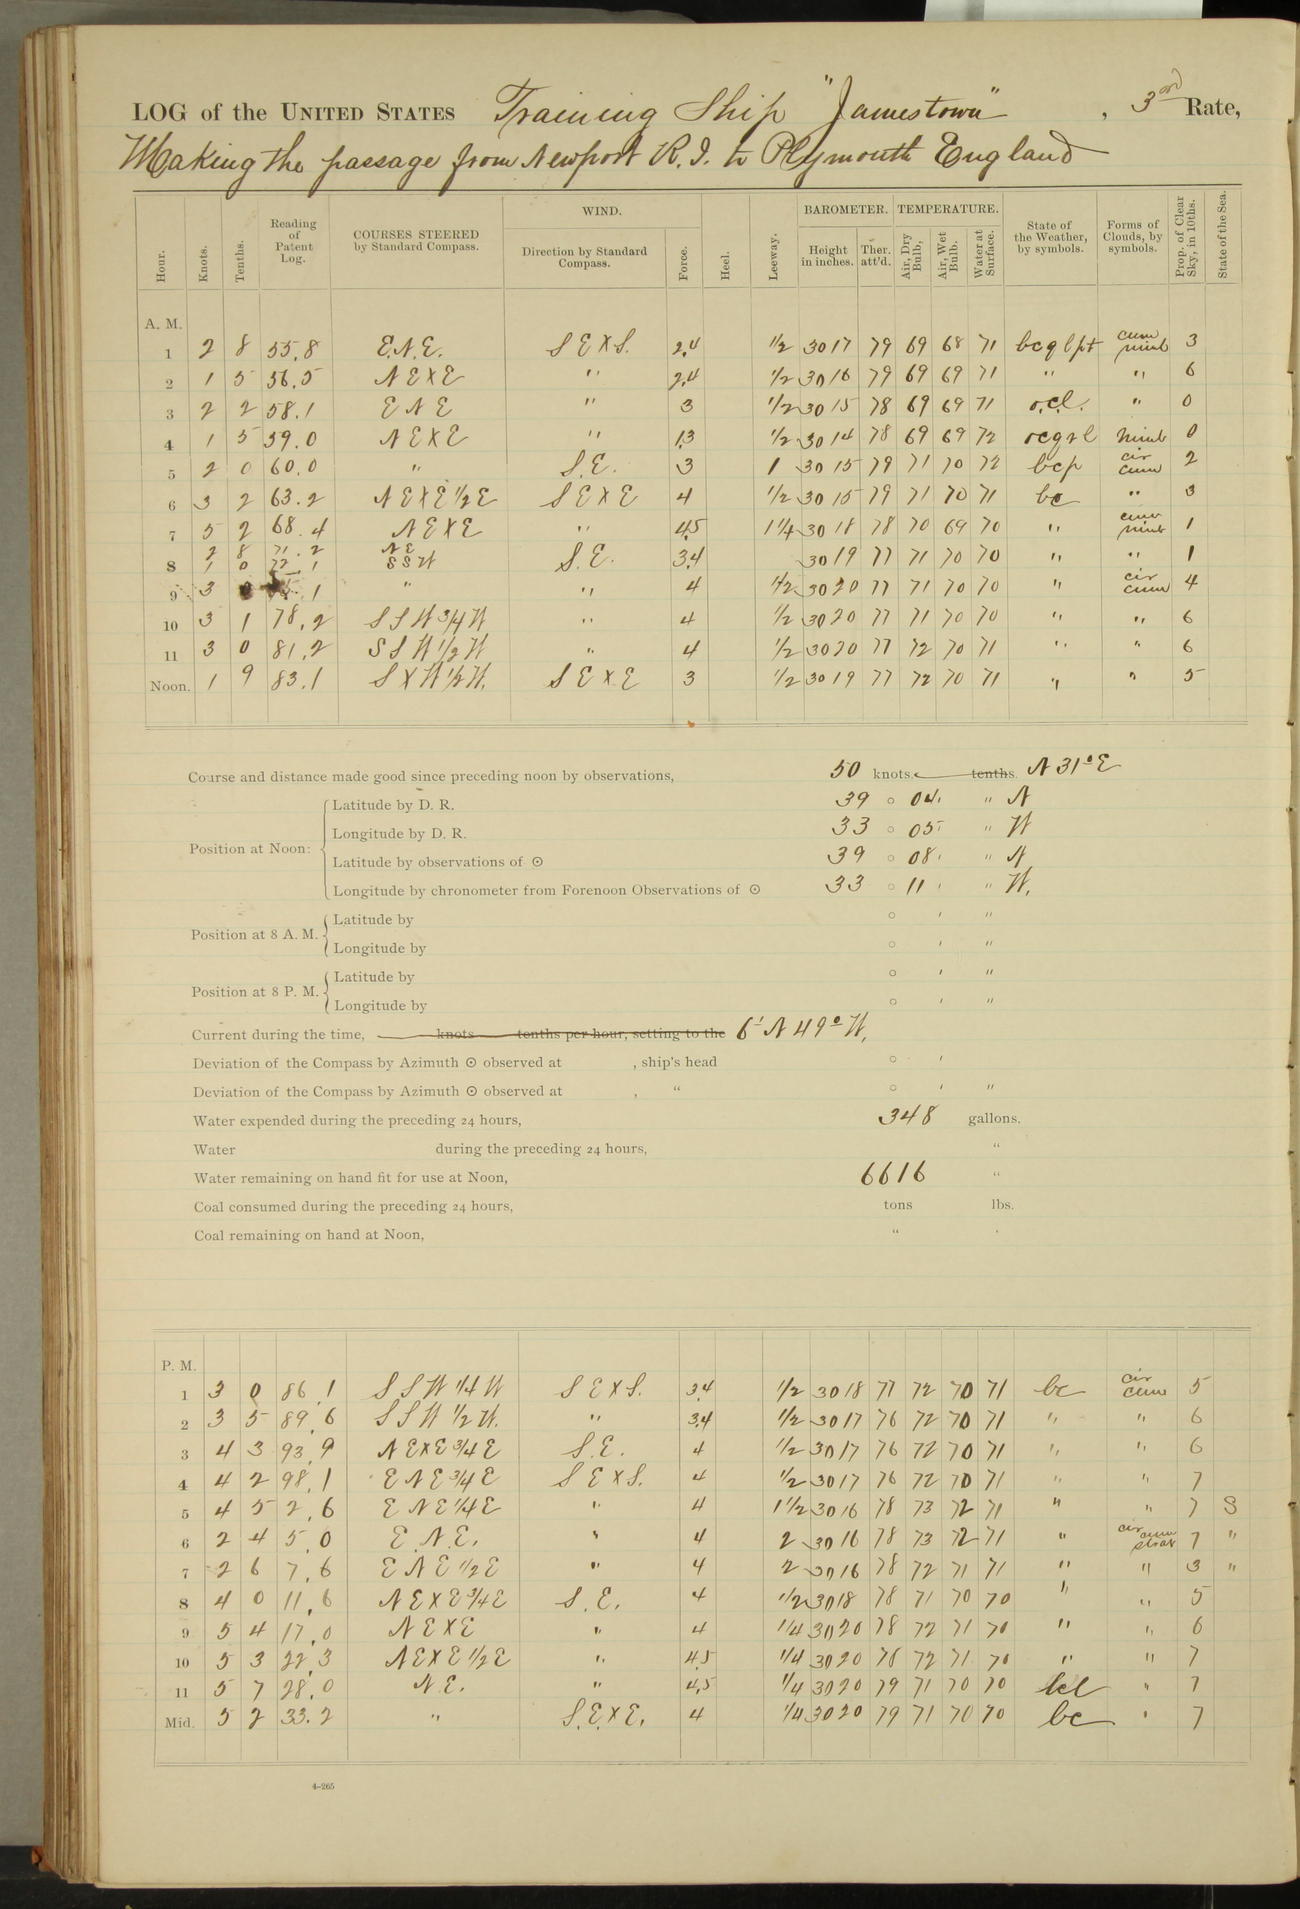 LOG of the UNITED STATES Training Ship "Jamestown", 3rd Rate,
Making the passage from Newport R.I. to Plymouth England
Hour. Knots. Tenths. Reading of Patent Log. COURSES STEERED by Standard Compass. WIND. Direction by Standard Compass. Force. Heel. Leeway. BAROMETER. Height in inches. Ther. att'd. TEMPERATURE. Air, Dry Bulb. Air, Wet Bulb. Water at Surface. State of the Weather, by symbols. Forms of Clouds, by symbols. Prop. of Clear Sky, in 10ths. State of the Sea.
A. M.
1 2 8 55.8 E.N.E. S E X S. 2.4 1/2 30 17 79 69 68 71 bcqlpt cum nimb 3
2 1 5 56.5 N E X E " 2.4 1/2 30 16 79 69 69 71 " " 6
3 2 2 58.1 E N E " 3 1/2 30 15 78 69 69 71 o.c.l. " 0
4 1 5 59.0 N E X E " 1.3 1/2 30 14 78 69 69 72 ocqrl Nimb 0
5 2 0 60.0 " S.E. 3 1 30 15 79 71 70 72 bcp cir cum 2
6 3 2 63.2 N E X E 1/2 E S E X E 4 1/2 30 15 79 71 70 71 bc " 3
7 5 2 68.4 N E X E " 4.5 1 1/4 30 18 78 70 69 70 " cum nimb 1
2 8 71.2 N E
8 1 0 72.1 S S W S.E. 3.4 30 19 77 71 70 70 " " 1
9 3 " " 4 1/2 30 20 77 71 70 70 " cir cum 4
10 3 1 78.2 S S W 3/4 W " 4 1/2 30 20 77 71 70 70 " " 6
11 3 0 81.2 S S W 1/2 W " 4 1/2 30 20 77 72 70 71 " " 6
Noon. 1 9 83.1 S X W 1/2 W. S E X E 3 1/2 30 19 77 72 70 71 " " 5
Course and distance made good since preceding noon by observations, 50 knots. tenths. N 31° E
Position at Noon:
Latitude by D. R. 39 ° 04 ' " N
Longitude by D. R. 33 ° 05 ' " W
Latitude by observations of ⊙ 39 ° 08 ' " N
Longitude by chronometer from Forenoon Observations of ⊙ 33 ° 11 ' " W.
Position at 8 A. M.
Latitude by ° ' "
Longitude by ° ' "
Position at 8 P. M.
Latitude by ° ' "
Longitude by ° ' "
Current during the time, knots tenths per hour, setting to the 6' N 49° W.
Deviation of the Compass by Azimuth ⊙ observed at , ship's head ° '
Deviation of the Compass by Azimuth ⊙ observed at , " ° ' "
Water expended during the preceding 24 hours, 348 gallons.
Water during the preceding 24 hours, "
Water remaining on hand fit for use at Noon, 6616 "
Coal consumed during the preceding 24 hours, tons lbs.
Coal remaining on hand at Noon, " '
P. M.
1 3 0 86.1 S S W 1/4 W S E X S. 3.4 1/2 30 18 77 72 70 71 bc cir cum 5
2 3 5 89.6 S S W 1/2 W. " 3.4 1/2 30 17 76 72 70 71 " " 6
3 4 3 93.9 N E X E 3/4 E S.E. 4 1/2 30 17 76 72 70 71 " " 6
4 4 2 98.1 E N E 3/4 E S E X S. 4 1/2 30 17 76 72 70 71 " " 7
5 4 5 2.6 E N E 1/4 E " 4 1 1/2 30 16 78 73 72 71 " " 7 S
6 2 4 5.0 E.N.E. " 4 2 30 16 78 73 72 71 " cir cum strat 7 "
7 2 6 7.6 E N E 1/2 E " 4 2 30 16 78 72 71 71 " " 3 "
8 4 0 11.6 N E X E 3/4 E S.E. 4 1/2 30 18 78 71 70 70 " " 5
9 5 4 17.0 N E X E " 4 1/4 30 20 78 72 71 70 " " 6
10 5 3 22.3 N E X E 1/2 E " 4.5 1/4 30 20 78 72 71 70 " " 7
11 5 7 28.0 N.E. " 4.5 1/4 30 20 79 71 70 70 bcl " 7
Mid. 5 2 33.2 " S.E. X E. 4 1/4 30 20 79 71 70 70 bc " 7
4-265